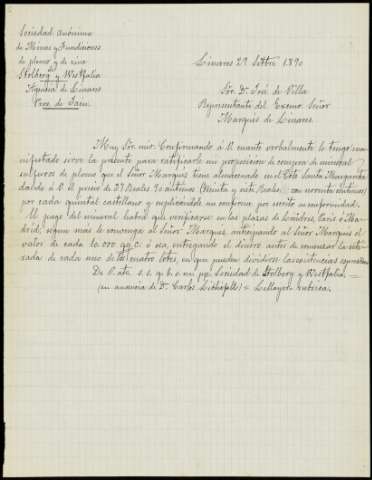 Sociedad Anónima
de Minas y Fundiciones
de plomo y de zinc
Stolberg y Westfalia
Agencia de Linares
Prov. de Jaen.
Linares 29 Setbre 1890
Sor. Dn. José de Villa
Representante del Excmo. Señor
Marqués de Linares
Muy Sor. mio: Confirmando á V. cuanto verbalmente le tengo ma-
nifestado sirve la presente para ratificarle mi proposicion de compra de mineral
sulfuros de plomo que el Señor Marqués tiene almacenado en el Coto Santa Margarita
dándole á V. el precio de 27 Reales 90 céntimos (Veinte y siete Reales con noventa céntimos)
por cada quintal castellano y suplicándole me conforme por escrito su conformidad.
Al pago del mineral habrá que verificarse en las plazas de Londres, Paris ó Ma-
drid, segun más le convenga al Señor Marqués, anticipando al Señor Marqués el
valor de cada 10.000 qq.c. ó sea, entregando el dinero antes de comenzar la reti-
rada de cada uno de los cuatro lotes, en que pueden dividirse las existencias
De V. atto. s. s. q. b. s. m. pp. Sociedad de Stolberg y Westfalia. =
(en ausencia de Dn. Carlos) =